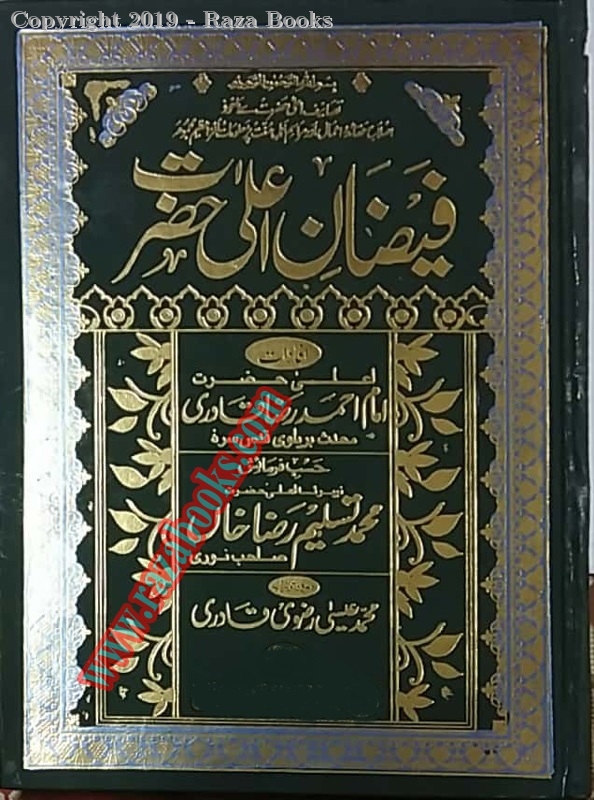 Copyright 2019 - Raza Books
تصانیف اعلیٰ حضرت سے ماخوذ
فیضانِ اعلیٰ حضرت
افادات
اعلیٰ حضرت
امام احمد رضا قادری
محدث بریلوی قدس سرہ
حسب فرمائش
نبیرۂ اعلیٰ حضرت
محمد تسلیم رضا خاں
صاحب نوری
محمد عیسیٰ رضوی قادری
www.razabooks.com